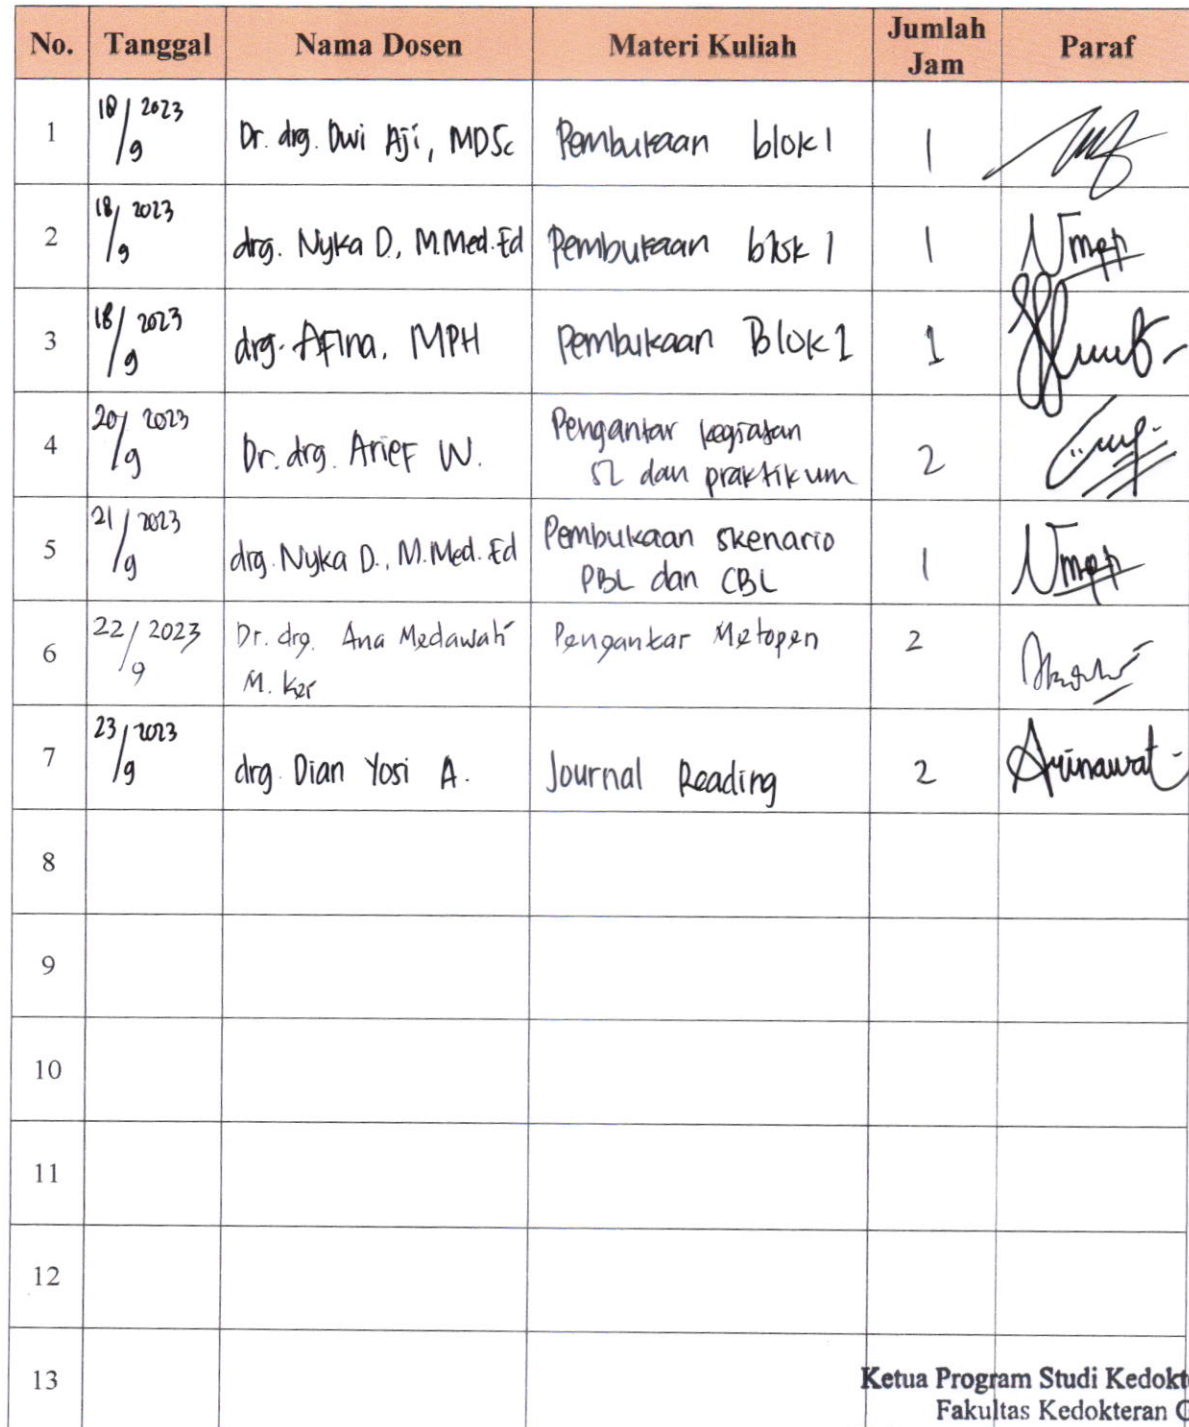 No. Tanggal Nama Dosen Materi Kuliah Jumlah Jam Paraf
1 18/9 2023 Dr. drg. Dwi Aji, MDSc Pembukaan blok 1 1
2 18/9 2023 drg. Nyka D., M.Med.Ed Pembukaan blok 1 1
3 18/9 2023 drg. Afina, MPH Pembukaan Blok 1 1
4 20/9 2023 Dr. drg. Arief W. Pengantar kegiatan
SL dan praktikum 2
5 21/9 2023 drg. Nyka D., M.Med.Ed Pembukaan skenario
PBL dan CBL 1
6 22/9 2023 Dr. drg. Ana Medawati
M. Kes Pengantar Metopen 2
7 23/9 2023 drg. Dian Yosi A. Journal Reading 2
8
9
10
11
12
13
Ketua Program Studi Kedokt
Fakultas Kedokteran